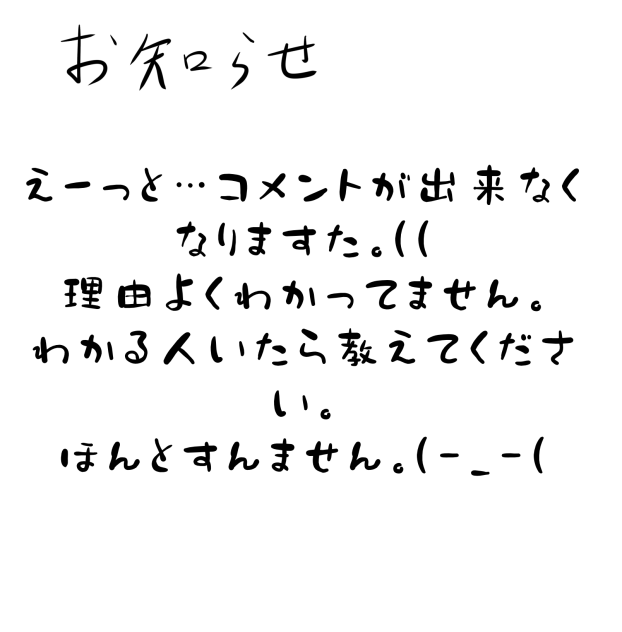 お知らせ
えーっと…コメントが出来なく
なりますた。((
理由よくわかってません。
わかる人いたら教えてくださ
い。
ほんとすんません。(－_－(